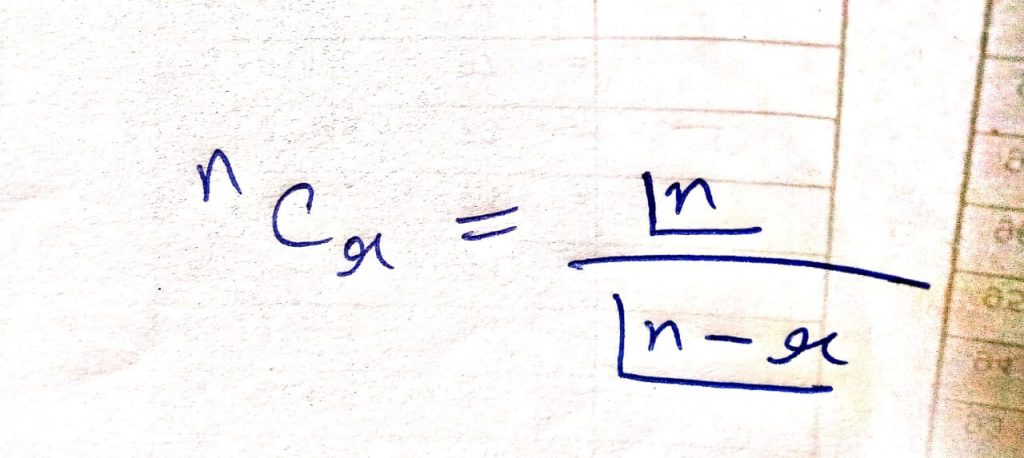 ⁿCᵣ = |n / |n-r